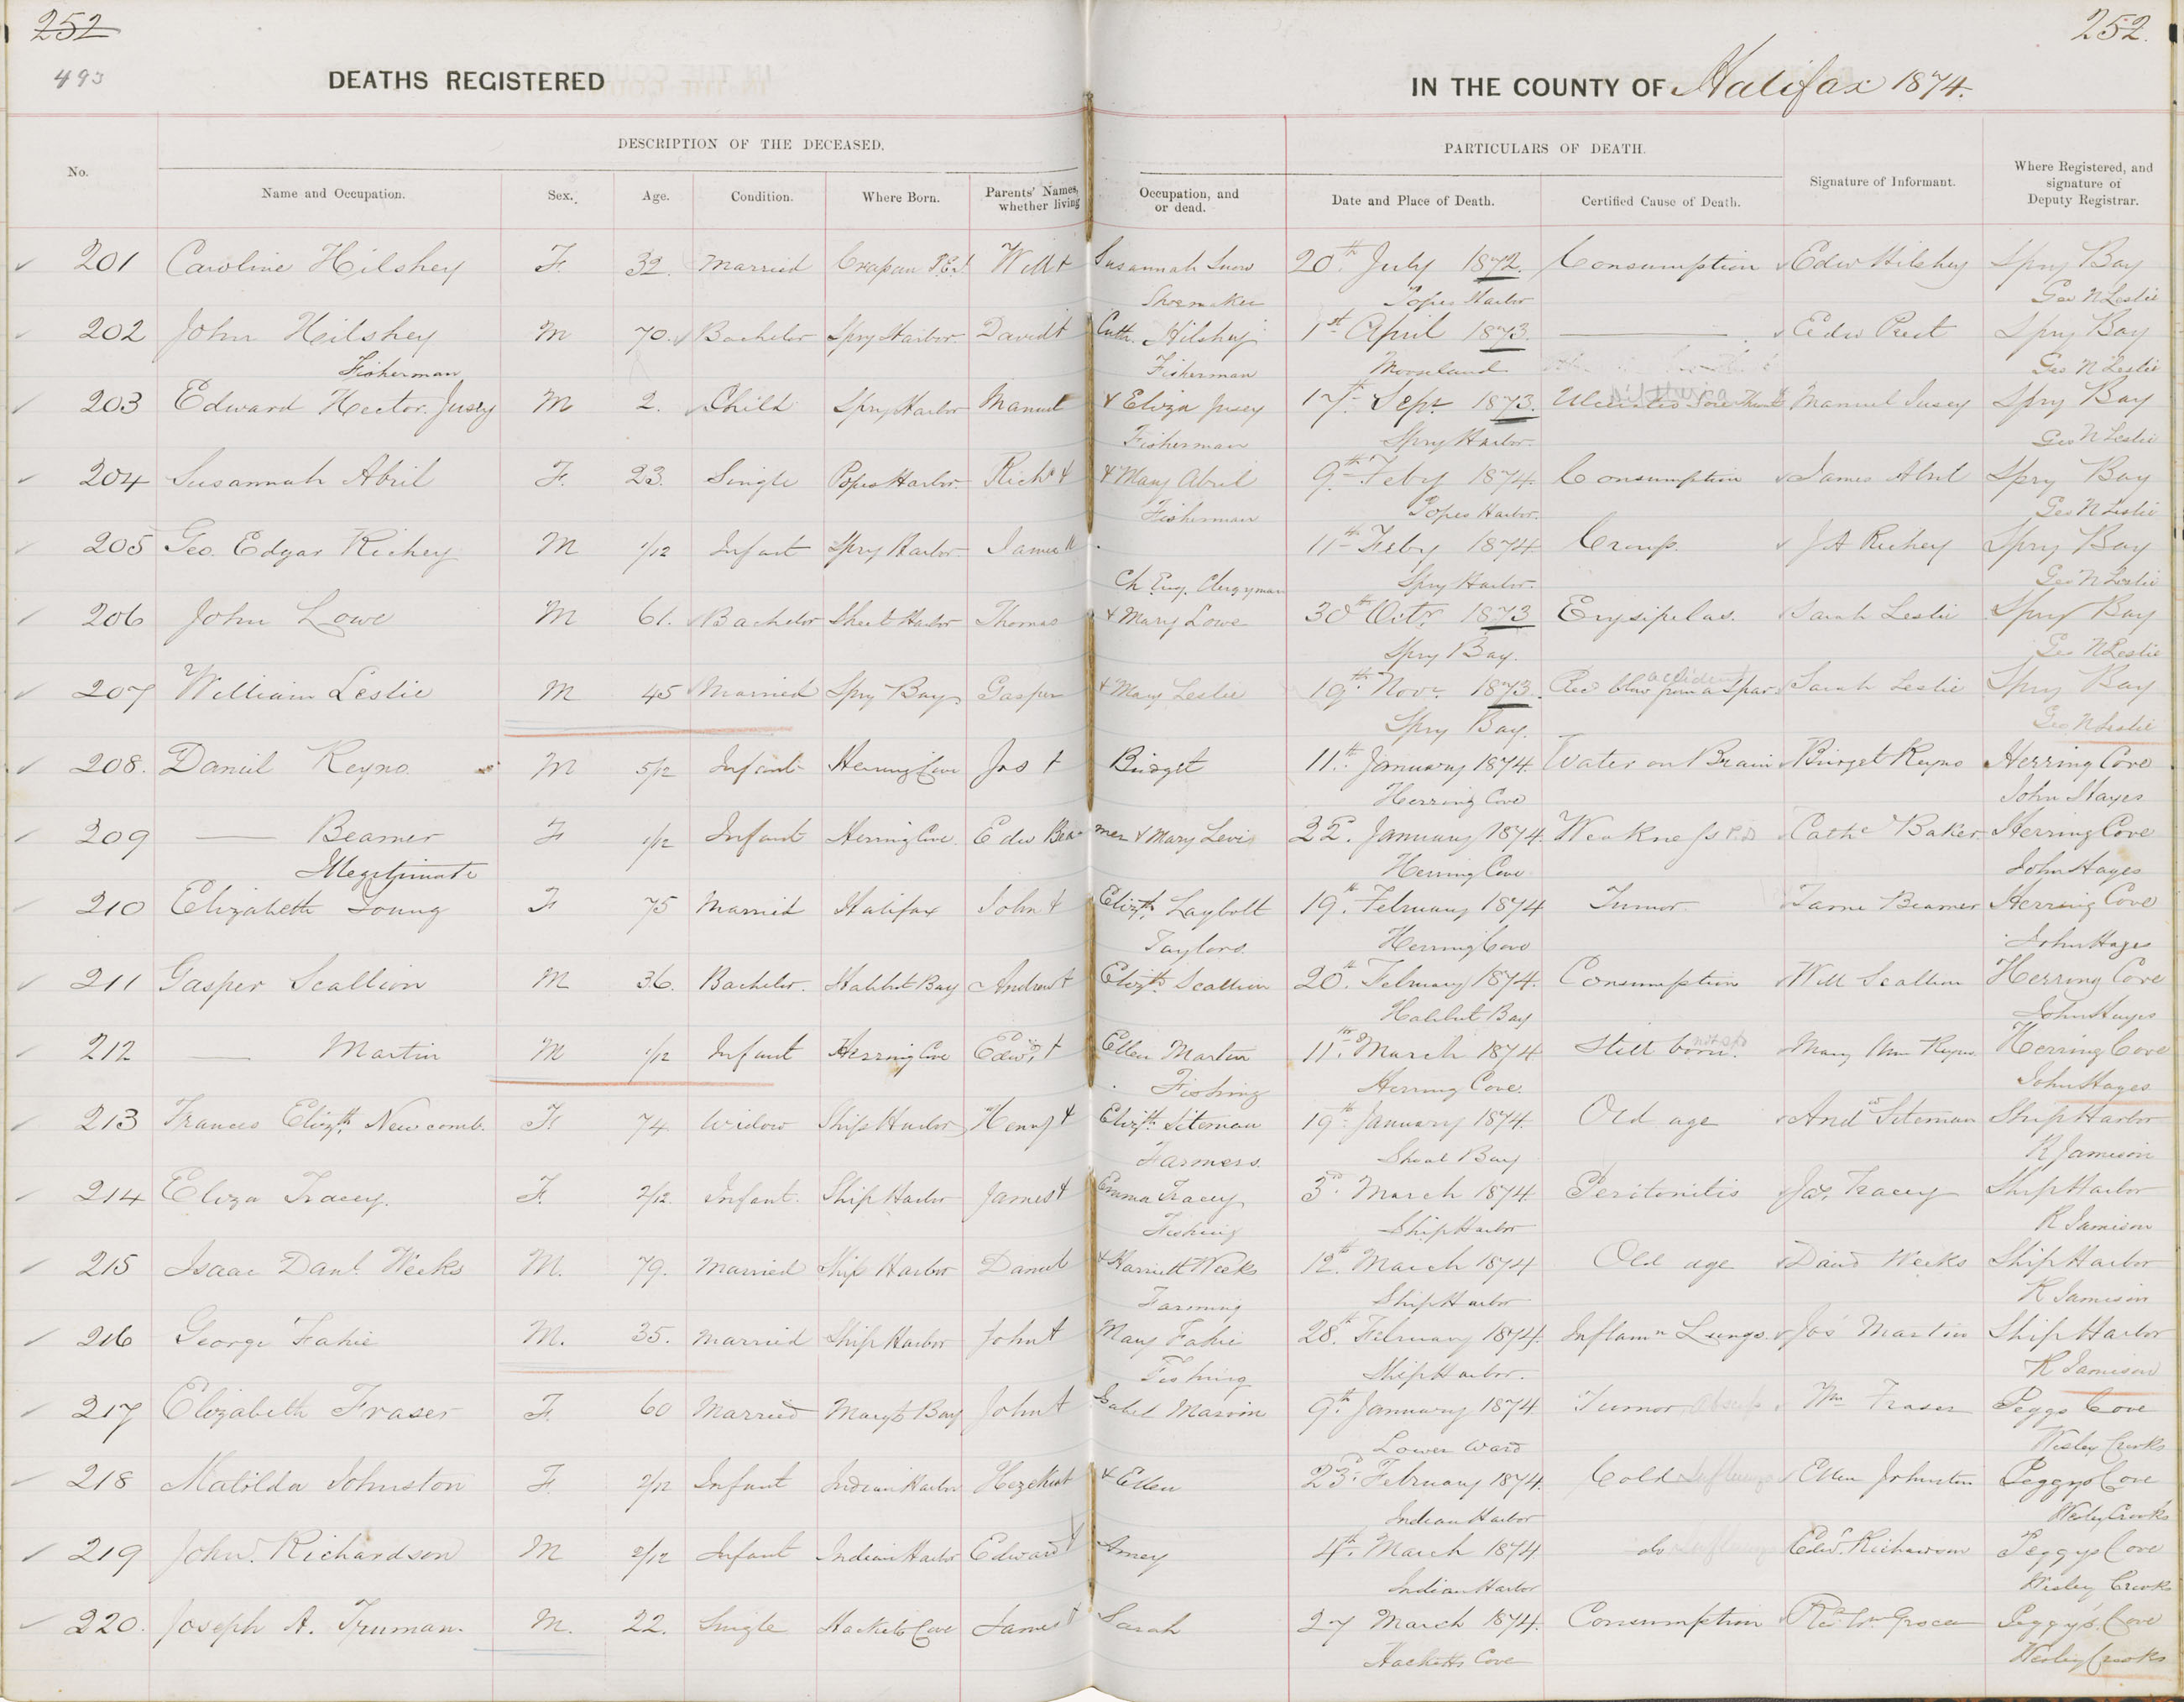 252
252.
493
DEATHS REGISTERED IN THE COUNTY OF Halifax 1874.
DESCRIPTION OF THE DECEASED. PARTICULARS OF DEATH.
No. Name and Occupation. Sex. Age. Condition. Where Born. Parents' Names, Occupation, and whether living or dead. Date and Place of Death. Certified Cause of Death. Signature of Informant. Where Registered, and signature of Deputy Registrar.
201 Caroline Hilshey F. 32. Married Crapau P.E.I. Will + Susannah Snow 20th July 1872. Consumption Edw Hilshey Spry Bay
Shoemaker Popes Harbor Geo N Leslie
202 John Hilshey M 70. Bachelor Spry Harbor David + Cath. Hilshey 1st April 1873. Edw Prest Spry Bay
Fisherman Fisherman Mooseland Geo N Leslie
203 Edward Hector Jusey M 2. Child Spry Harbor Manuel & Eliza Jusey 17th Sept 1873. Ulcerated Sore Throat Manuel Jusey Spry Bay
Fisherman Spry Harbor. Geo N Leslie
204 Susannah Abril F. 23. Single Popes Harbor. Richd + & Mary Abril 9th Feby 1874. Consumption James Abril Spry Bay
Fisherman Popes Harbor. Geo N Leslie
205 Geo. Edgar Richey M 1/12 Infant Spry Harbor James 11th Feby 1874 Croup. J A Richey Spry Bay
Ch Eng. Clergyman Spry Harbor. Geo N Leslie
206 John Lowe M 61. Bachelor Sheet Harbor Thomas & Mary Lowe 30th Octr 1873 Erysipelas. Sarah Leslie Spry Bay
Spry Bay. Geo N Leslie
207 William Leslie M 45 Married Spry Bay Gasper & Mary Leslie 19th Novr 1873. Rec blow from a Spar accident Sarah Leslie Spry Bay
Spry Bay. Geo N Leslie
208. Daniel Reyno. M 5/12 Infant Herring Cove Jas + Bridget 11th January 1874. Water on Brain Bridget Reyno Herring Cove
Herring Cove John Hayes
209 — Beamer F 1/12 Infant Herring Cove. Edw Beamer & Mary Levis 22. January 1874. Weakness Cathe Baker Herring Cove
Illegitimate Herring Cove John Hayes
210 Elizabeth Young F 75 Married Halifax John + Elizth Laybolt 19th February 1874 Tumor. Beamer Herring Cove
Taylors. Herring Cove John Hayes
211 Gasper Scallion M 36. Bachelor. Halibut Bay Andrew + Elizth Scallion 20th February 1874. Consumption Will Scallion Herring Cove
Halibut Bay John Hayes
212 — Martin M 1/12 Infant Herring Cove Edwd + Ellen Martin 11th March 1874 Still born. Mary Ann Reyno Herring Cove
Fishing Herring Cove. John Hayes
213 Frances Elizth Newcomb. F. 74 Widow Ship Harbor Henry + Elizth Siteman 19th January 1874. Old age Andw Siteman Ship Harbor
Farmers. Shoal Bay R Jamison
214 Eliza Tracey. F. 2/12. Infant. Ship Harbor James + Emma Tracey 3rd March 1874. Peritonitis Jas. Tracey Ship Harbor
Fishing Ship Harbor R Jamison
215 Isaac Danl. Weeks M. 79. Married Ship Harbor Daniel & Harriett Weeks 12th March 1874 Old age David Weeks Ship Harbor
Farming Ship Harbor R Jamison
216 George Fahie M. 35. Married Ship Harbor John + Mary Fahie 28th February 1874. Inflamn Lungs. Jos Martin Ship Harbor
Fishing Ship Harbor. R Jamison
217 Elizabeth Fraser F. 60 Married Margts Bay John + Isabel Mason 9th January 1874 Tumor Wm Fraser Peggs Cove
Lower Ward Wesley Crooks
218 Matilda Johnston F. 2/12 Infant Indian Harbor Hezekiah & Ellen 23rd February 1874. Cold Ellen Johnston Peggys Cove
Indian Harbor Wesley Crooks
219 John. Richardson M 2/12 Infant Indian Harbor Edward + Amey 4th March 1874 do Edwd. Richardson Peggys Cove
Indian Harbor Wesley Crooks
220. Joseph A. Truman. M. 22. Single Hacketts Cove James + Sarah 27 March 1874. Consumption Peggy's Cove
Hacketts Cove Wesley Crooks